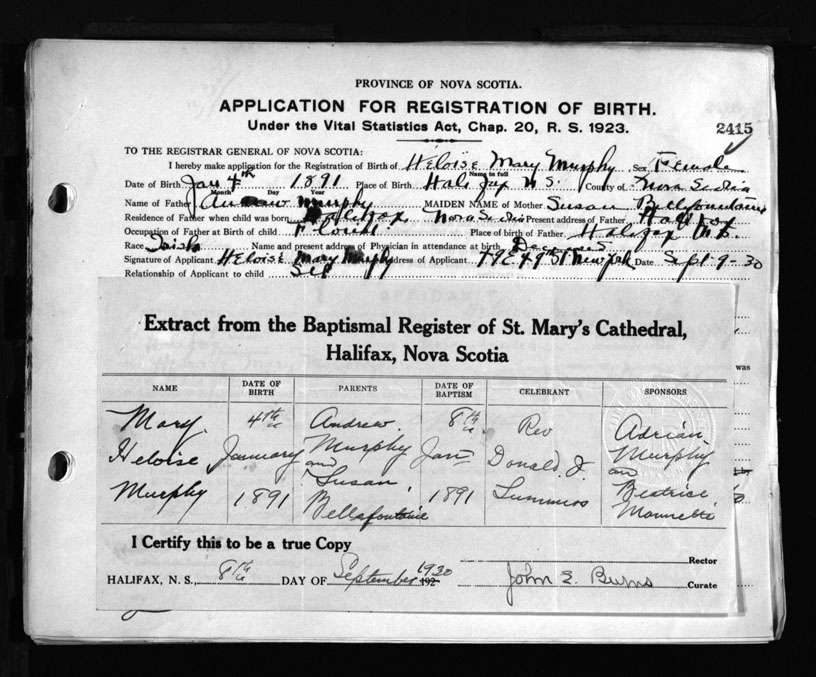 PROVINCE OF NOVA SCOTIA.
APPLICATION FOR REGISTRATION OF BIRTH.
Under the Vital Statistics Act, Chap. 20, R. S. 1923.
2415
TO THE REGISTRAR GENERAL OF NOVA SCOTIA:
I hereby make application for the Registration of Birth of Heloise Mary Murphy Sex Female
Name in full
Date of Birth Jan 4th 1891 Place of Birth Halifax N.S. County of Nova Scotia
Month Day Year
Name of Father Andrew Murphy MAIDEN NAME of Mother Susan Bellfountaine
Residence of Father when child was born Halifax Nova Scotia Present address of Father Halifax
Occupation of Father at Birth of child Place of Birth of Father Halifax N.S.
Race Irish Name and present address of Physician in attendance at birth Deceased
Signature of Applicant Heloise Mary Murphy Address of Applicant E 49th St. New York Date Sept-9-30
Relationship of Applicant to child Self
Extract from the Baptismal Register of St. Mary's Cathedral,
Halifax, Nova Scotia
NAME DATE OF BIRTH PARENTS DATE OF BAPTISM CELEBRANT SPONSORS
Mary 4th Andrew 8th Rev Adrian
Heloise January Murphy Jan Donald J. Murphy
and and
Murphy 1891 Susan 1891 Beatrice
Bellafontaine
was
I Certify this to be a true Copy
Rector
HALIFAX, N. S., 8th DAY OF September 1930 192 John E. Burns Curate